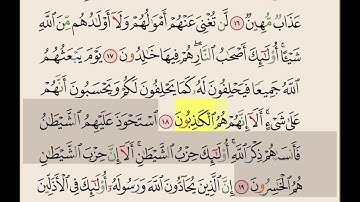 عَذَابٌ مُّهِينٌ ١٦ لَّن تُغْنِىَ عَنْهُمْ أَمْوَٰلُهُمْ وَلَآ أَوْلَـٰدُهُم مِّنَ ٱللَّهِ
شَيْـًٔا ۚ أُو۟لَـٰٓئِكَ أَصْحَـٰبُ ٱلنَّارِ ۖ هُمْ فِيهَا خَـٰلِدُونَ ١٧ يَوْمَ يَبْعَثُهُمُ
ٱللَّهُ جَمِيعًا فَيَحْلِفُونَ لَهُۥ كَمَا يَحْلِفُونَ لَكُمْ ۖ وَيَحْسَبُونَ أَنَّهُمْ
عَلَىٰ شَىْءٍ ۚ أَلَآ إِنَّهُمْ هُمُ ٱلْكَـٰذِبُونَ ١٨ ٱسْتَحْوَذَ عَلَيْهِمُ ٱلشَّيْطَـٰنُ
فَأَنسَىٰهُمْ ذِكْرَ ٱللَّهِ ۚ أُو۟لَـٰٓئِكَ حِزْبُ ٱلشَّيْطَـٰنِ ۚ أَلَآ إِنَّ حِزْبَ ٱلشَّيْطَـٰنِ
هُمُ ٱلْخَـٰسِرُونَ ١٩ إِنَّ ٱلَّذِينَ يُحَآدُّونَ ٱللَّهَ وَرَسُولَهُۥٓ أُو۟لَـٰٓئِكَ فِى ٱلْأَذَلِّينَ